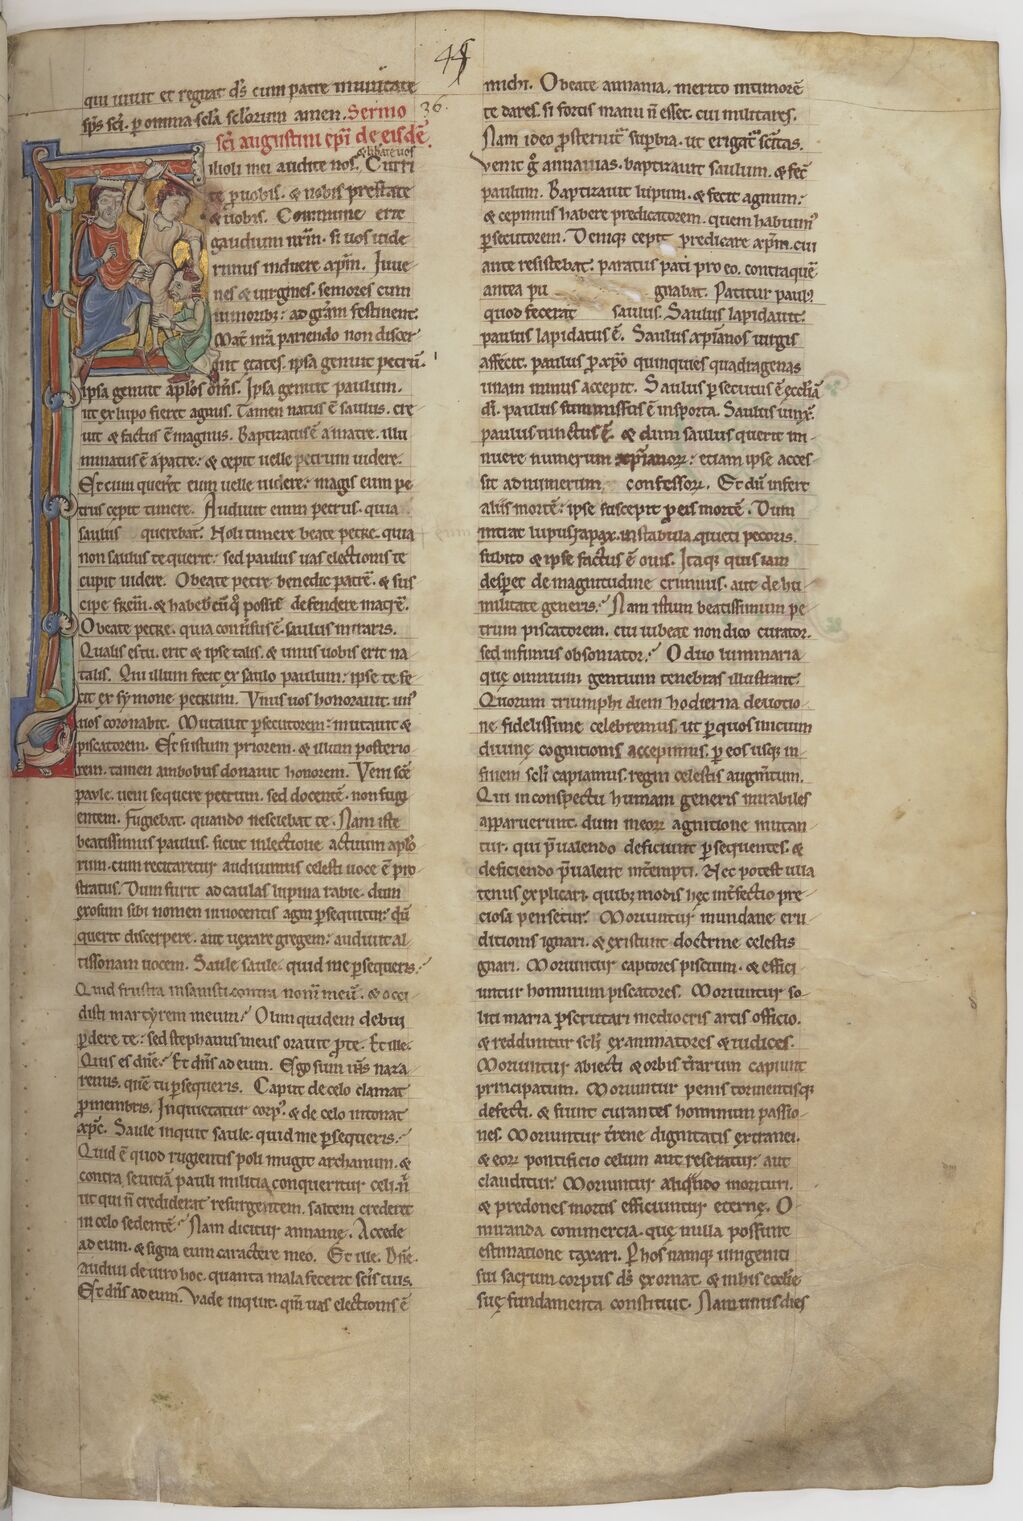 45
qui uiuit et regnat ds cum patre in unitate
sps sci. p omnia scla sclorum amen. Sermo 36.
sci augustini epi de eisdē.
& librate uos
Filioli mei audite nos. Curri
te p uobis. & nobis prestate
& uobis. Commune erit
gaudium nrm. si uos uide
rimus induere xpm. Iuue
nes & uirgines. seniores cum
iunioribz. ad gram festinent.
Mat̄ una pariendo non discer
nit etates. ipsa genuit petrū.
ipsa genuit aplos om̄s. Ipsa genuit paulum.
ut ex lupo fieret agnus. Tamen natus ē saulus. cre
uit & factus ē magnus. Baptizatus ē a matre. illu
minatus ē a patre. & cepit uelle petrum uidere.
Et cum quereret eum uelle uidere. magis eum pe
trus cepit timere. Audiuit enim petrus. quia
saulus querebat. Noli timere beate petre. quia
non saulus te querit. sed paulus uas electionis te
cupit uidere. O beate petre benedic patrē. & sus
cipe frem. & habeb cū q possis defendere matrē.
O beate petre. quia conuersus ē saulus miraris.
Qualis es tu. erit & ipse talis. & unus uobis erit na
talis. Qui illum fecit ex saulo paulum. ipse te fe
cit ex symone petrum. Vnus uos honorauit. un'
uos coronabit. Mutauit psecutorem. mutauit &
piscatorem. Et si istum priorem. & illum posterio
rem. tamen ambobus donauit honorem. Veni scē
paule. ueni sequere petrum. sed docentē. non fugi
entem. Fugiebat. quando nesciebat te. Nam iste
beatissimus paulus. sicut in lectione actuum aplo
rum. cum recitaretur audiuimus celesti uoce ē pro
stratus. Dum furit ad caulas lupina rabie. dum
exosum sibi nomen innocentis agni psequitur. dū
querit discerpere. aut uexare gregem. audiuit al
tissonam uocem. Saule saule. quid me psequeris.
Quid frustra insanisti contra nom̄ meū. & occi
disti martyrem meum. Olim quidem debui
pdere te. sed stephanus meus orauit p te. Et ille.
Quis es dn̄e. Et dn̄s ad eum. Ego sum ihs naza
renus. quē tu psequeris. Caput de celo clamat
p membris. Inquietatur corp'. & de celo intonat
xpc. Saule inquit saule. quid me psequeris.
Quid ē quod rugientis poli mugit archanum. &
contra seuitiā pauli militia conqueritur celi. n̄
ut qui n̄ crediderat resurgentem. saltem crederet
in celo sedentē. Nam dicitur ananie. Accede
ad eum. & signa eum caractere meo. Et ille. Dn̄e.
audiui de uiro hoc. quanta mala fecerit scīs tuis.
Et dn̄s ad eum. Vade inquit. qm̄ uas electionis ē
michi. O beate annania. merito in timorē
te dares. si fortis manu n̄ esset. cui militares.
Nam ideo psternit superbia. ut erigat sc̄itas.
Venit g annanias. baptizauit saulum. & fec̄
paulum. Baptizauit lupum. & fecit agnum.
& cepimus habere predicatorem. quem habuim'
psecutorem. Deniq cepit predicare xpm. cui
ante resistebat. paratus pati pro eo. contra quē
antea pu gnabat. Patitur paul'
quod fecerat saulus. Saulus lapidauit.
paulus lapidatus ē. Saulus xpianos uirgis
affecit. paulus p xpo quinquies quadragenas
unam minus accepit. Saulus psecutus ē eccliā
di. paulus summissus ē in sporta. Saulus uinx̄.
paulus uinctus ē. & dum saulus querit mi
nuere numerum xpianorum. etiam ipse acces
sit ad numerum confessorum. Et dū infert
aliis mortē. ipse suscepit p eis mortē. Dum
intrat lupus rapax in stabula quieti pecoris.
subito & ipse factus ē ouis. Itaq quis iam
desperet de magnitudine criminis. aut de hu
militate generis. Nam istum beatissimum pe
trum piscatorem. cui iubeat non dico curator.
sed infimus obsonator. O duo luminaria
quę omnium gentium tenebras illustrant.
Quorum triumphi diem hodierna deuotio
ne fidelissime celebremus. ut p quos inicium
diuinę cognitionis accepimus. p eos usq in
finem scli capiamus regni celestis augm̄tum.
Qui in conspectu humani generis mirabiles
apparuerunt. dum in eorum agnitione mutan
tur. qui p̄ualendo deficiunt psequentes. &
deficiendo p̄ualent int̄empti. Nec potest ulla
tenus explicari. quibz modis hęc int̄fectio pre
ciosa pensetur. Moriuntur mundane eru
ditionis ignari. & existunt doctrine celestis
gnari. Moriuntur captores piscium. & effici
untur hominum piscatores. Moriuntur so
liti maria pscrutari mediocris artis officio.
& redduntur scli examinatores & iudices.
Moriuntur abiecti & orbis t̄rarum capiunt
principatum. Moriuntur penis tormentisq
defecti. & fiunt curantes hominum passio
nes. Moriuntur t̄rene dignitatis extranei.
& eorum pontificio celum aut reseratur. aut
clauditur. Moriuntur aliqndo morituri.
& predones mortis efficiuntur eternę. O
miranda commercia. quę nulla possunt
estimatione taxari. P hos namq unigeniti
sui sacrum corpus ds exornat. & in his ecclie
suę fundamenta constituit. Nam unus dies